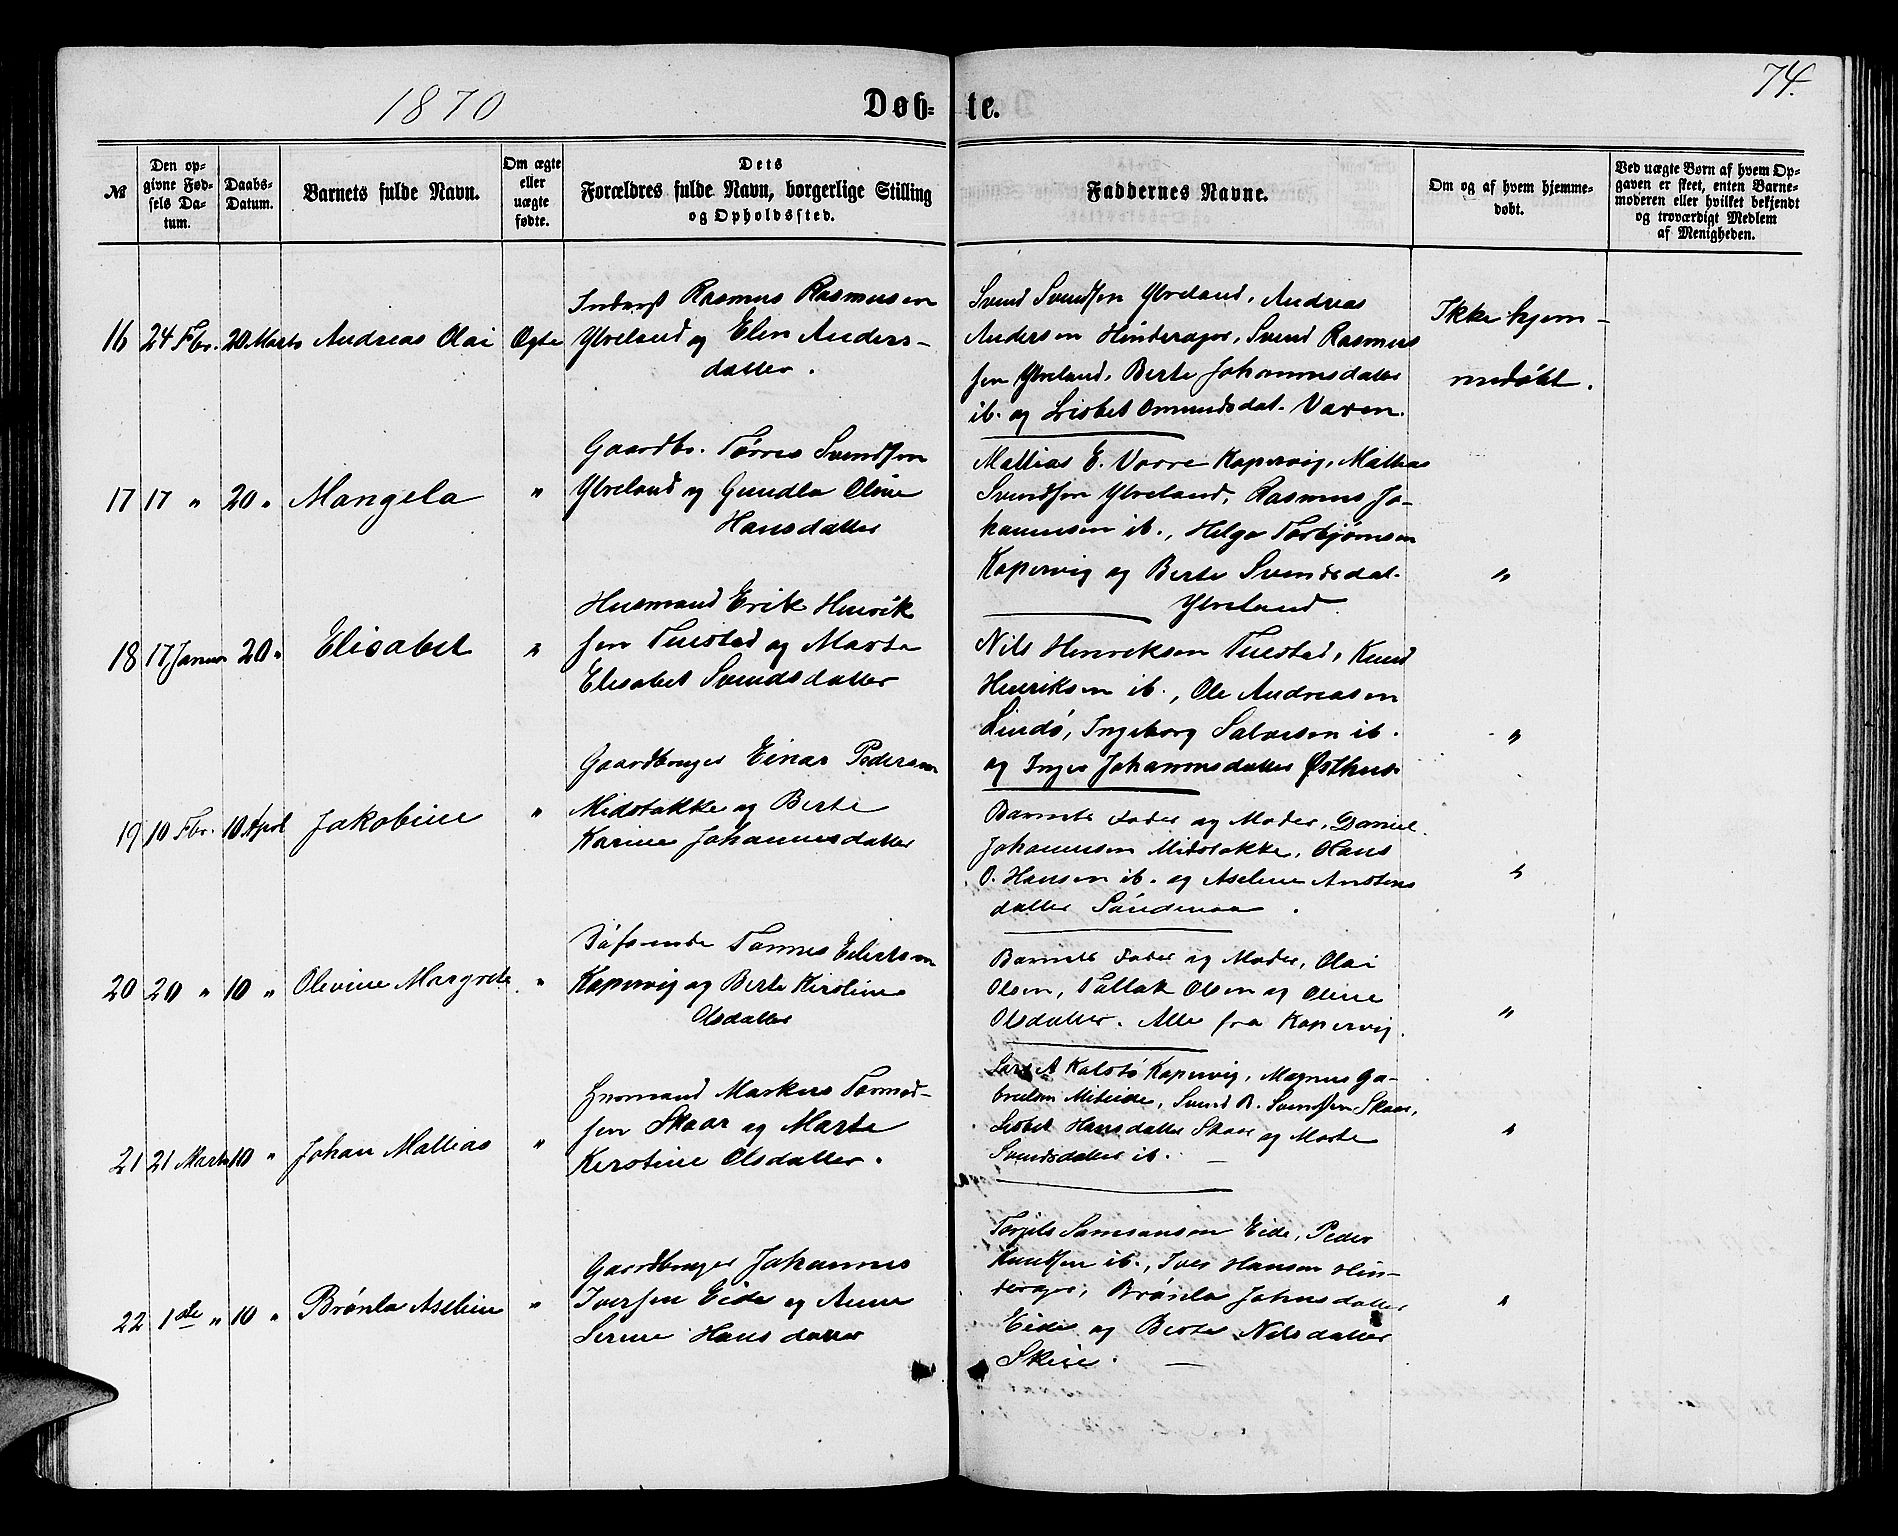 1870
Døb-
te.
74.
№
Den op-
givne Fød-
sels Da-
tum.
Daabs-
Datum.
Barnets fulde Navn.
Om ægte
eller
uægte
fødte.
Dets
Forældres fulde Navn, borgerlige Stilling
og Opholdssted.
Faddernes Navne.
Om og af hvem hjemme-
døbt.
Ved uægte Børn af hvem Op-
gaven er skeet, enten Barne-
moderen eller hvilket bekjendt
og troværdigt Medlem
af Menigheden.
16 24 Fbr. 20 Marts Andreas Olai Ægte
Rasmus Rasmusen
Ytreland og Elen Anders-
datter.
Svend Svendsen Ytreland, Andreas
Andersen Hinderager, Svend Rasmus
sen Ytreland, Berte Johannesdatter
ib. og Lisbet Omundsdat. Varen.
Ikke hjem-
medøbt.
17 17 " 20 " Mangela "
Gaardbr. Tørres Svendsen
Ytreland og Gundla Oline
Hansdatter
Mattias E. Vorre Kopervig, Mathias
Svendsen Ytreland, Rasmus Jo-
hannesen ib., Helge Torbjørnsen
Kopervig og Berte Svendsdat.
Ytreland.
"
18 17 Januar 20 " Elisabet "
Husmand Erik Henrik
sen Tuestad og Marta
Elisabet Svendsdatter
Nils Henriksen Tuestad, Knud
Henriksen ib., Ole Andreasen
Lindø, Ingeborg Salvesen ib.
og Inger Johannesdatter Østhus
"
19 10 Fbr. 10 April Jakobine "
Gaardbruger Einar Pedersen
Midstokke og Berte
Karine Johannesdatter
Barnets Fader og Moder, Daniel
Johannesen Midstokke, Olaus
O. Hansen ib. og Aseline Anstens
datter Sandenaa.
"
20 20 " 10 " Olevine Margrete "
Tønnes Eilertsen
Kopervig og Berte Kirstine
Olsdatter
Barnets Fader og Moder, Olai
Olsen, Tallak Olsen og Oline
Olsdatter. Alle fra Kopervig.
"
21 21 Marts 10 " Johan Mattias "
Husmand Markus Tormod-
sen Skaar og Marte
Kirstine Olsdatter.
Lars A Kolstø Kopervig, Magnus Ga-
brielsen Miteide, Svend R. Svendsen Skaar,
Lisbet Hansdatter Skaar og Marte
Svendsdatter ib.
"
22 1de " 10 " Brønla Aseline "
Gaardbruger Johannes
Iversen Eide og Anne
Serine Hansdatter
Torjils Samsonsen Eide, Peder
Knudsen ib., Iver Hansen Hin-
derager, Brønla Johnsdatter
Eide og Berte Nilsdatter
Skeie.
"